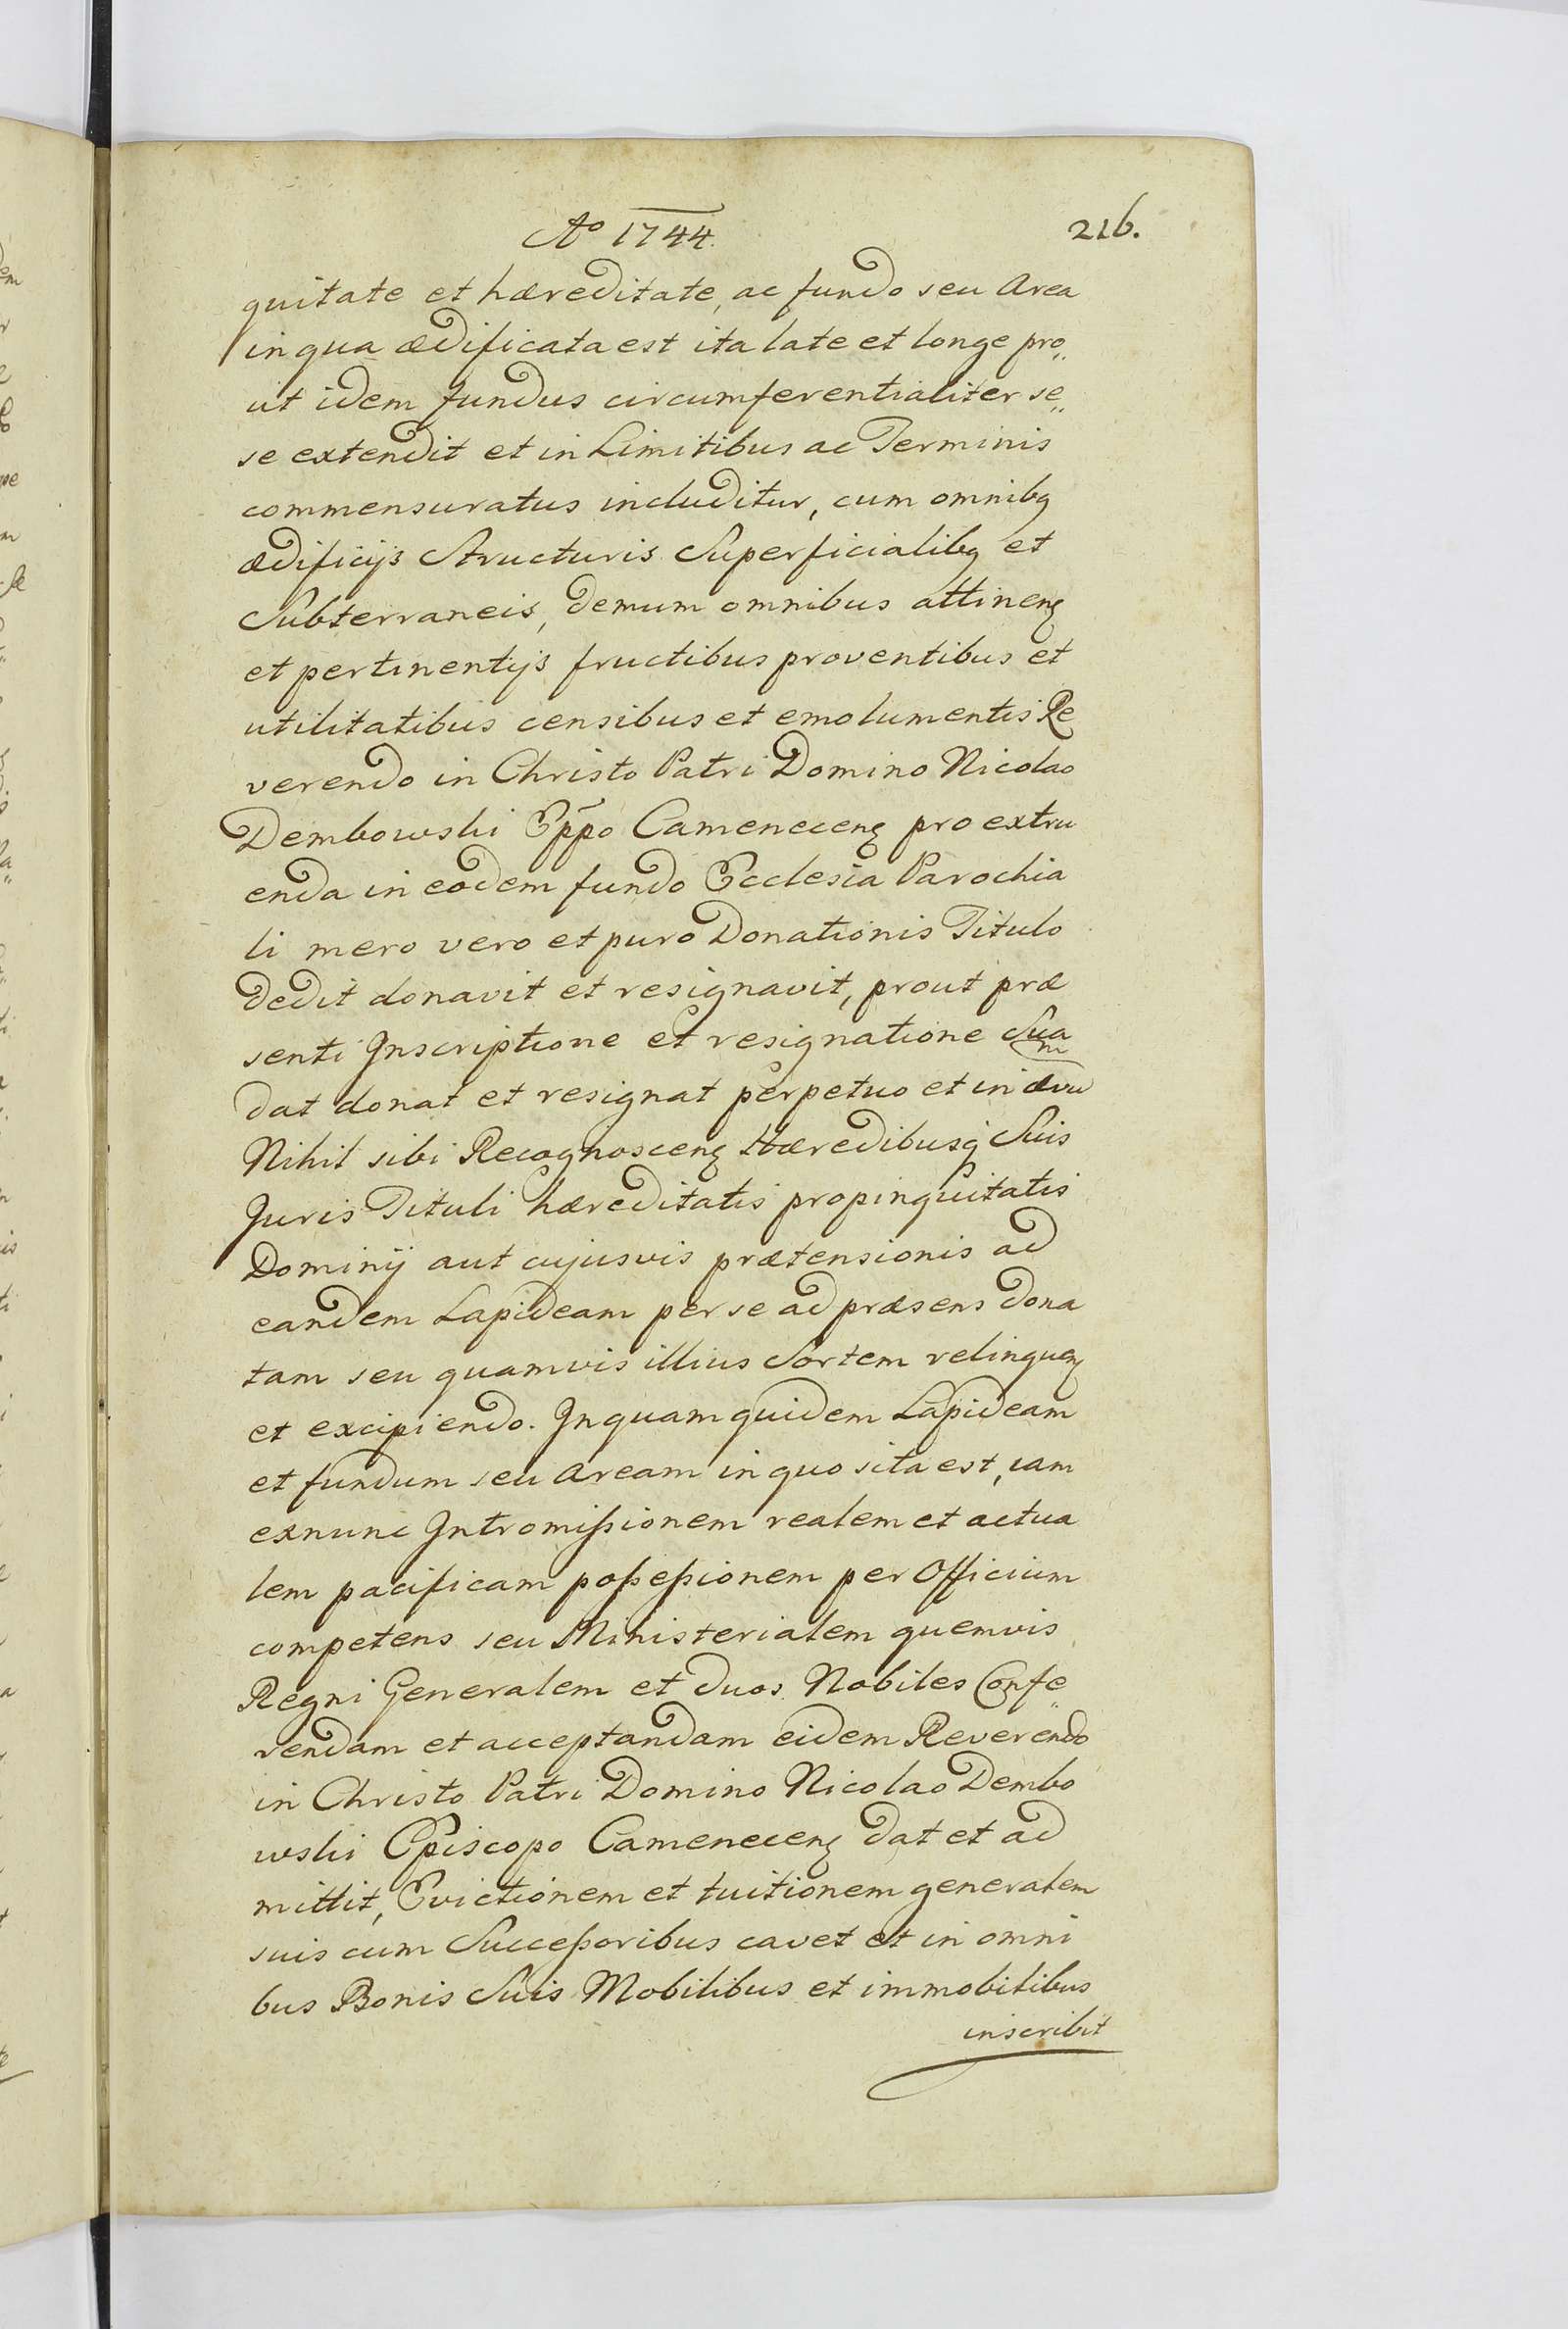 Aº 1744. 216.
quitate et hæreditate, ac fundo seu Area
in qua ædificata est ita late et longe pro„
ut idem fundus circumferentialiter se„
se extendit et in Limitibus ac Terminis
commensuratus includitur, cum omnibq
ædificijs Structuris Superficialibq et
Subterraneis, demum omnibus attinenȝ
et pertinentijs fructibus proventibus et
utilitatibus censibus et emolumentis Re
verendo in Christo Patri Domino Nicolao
Dembowski Eppo Camenecenȝ pro extru
enda in eodem fundo Ecclesia Parochia
li mero vero et puro Donationis Titulo
dedit donavit et resignavit, prout præ
senti Inscriptione et resignatione Sua
dat donat et resignat perpetuo et in ævū
Nihil sibi Recognoscenȝ Hæredibusq Suis
Juris Tituli hæreditatis propinquitatis
Dominij aut cujusvis prætensionis ad
eandem Lapideam per se ad præsens dona
tam seu quamvis illius Sortem relinquenȝ
et excipiendo. In quam quidem Lapideam
et fundum seu Aream in quo sita est, iam
exnunc Intromißionem realem et actua
lem pacificam poßeßionem per Officium
competens seu Ministerialem quemvis
Regni Generalem et duos Nobiles Confe„
rendam et acceptandam eidem Reverendo
in Christo Patri Domino Nicolao Dembo
wski Episcopo Camenecenȝ dat et ad
mittit, Evictionem et tuitionem generalem
suis cum Succeßoribus cavet et in omni
bus Bonis Suis Mobilibus et immobilibus
inscribit